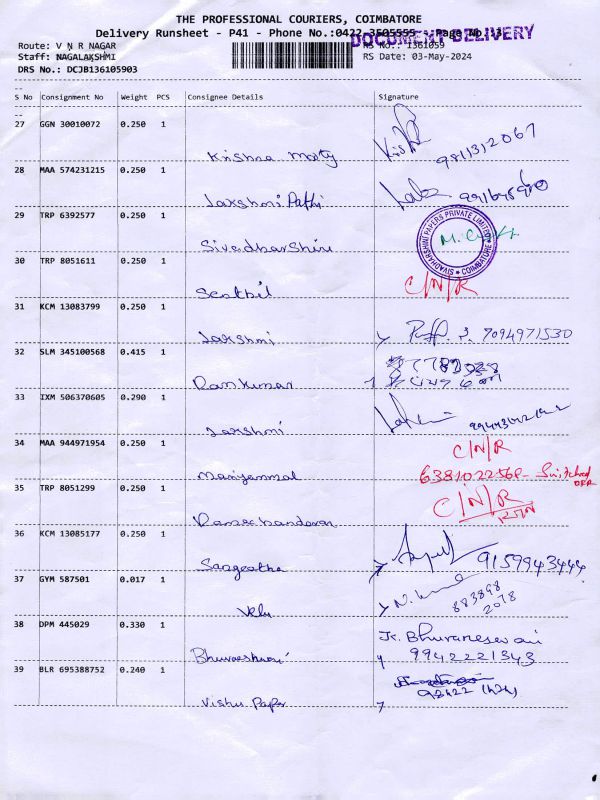 THE PROFESSIONAL COURIERS, COIMBATORE
Delivery Runsheet - P41 - Phone No.:0422 3505555 - Page No.:3
DOCUMENT DELIVERY
Route: V N R NAGAR
RS No.: 1361059
Staff: NAGALAKSHMI
RS Date: 03-May-2024
DRS No.: DCJB136105903
S No Consignment No Weight PCS Consignee Details Signature
27 GGN 30010072 0.250 1
Krishna Moty 9811312067
28 MAA 574231215 0.250 1
Lakshmi Pathi
29 TRP 6392577 0.250 1
Sivadharshini
SIVADHARSHINI PAPERS PRIVATE LIMITED * COIMBATORE *
30 TRP 8051611 0.250 1
C/N/R
31 KCM 13083799 0.250 1
Lakshmi 7094971530
32 SLM 345100568 0.415 1
Ramkumar
33 IXM 506370605 0.290 1
Lakshmi
34 MAA 944971954 0.250 1
C/N/R
Mariyammal 6381022568 - Switched OFF
35 TRP 8051299 0.250 1
C/N/R
Ramachandaran
36 KCM 13085177 0.250 1
Sangeetha 9159943444
37 GYM 587501 0.017 1
Velu 883898 2078
38 DPM 445029 0.330 1
K. Bhuvaneswari
Bhuvaeshwari 9942221343
39 BLR 695388752 0.240 1
Vishu Paper